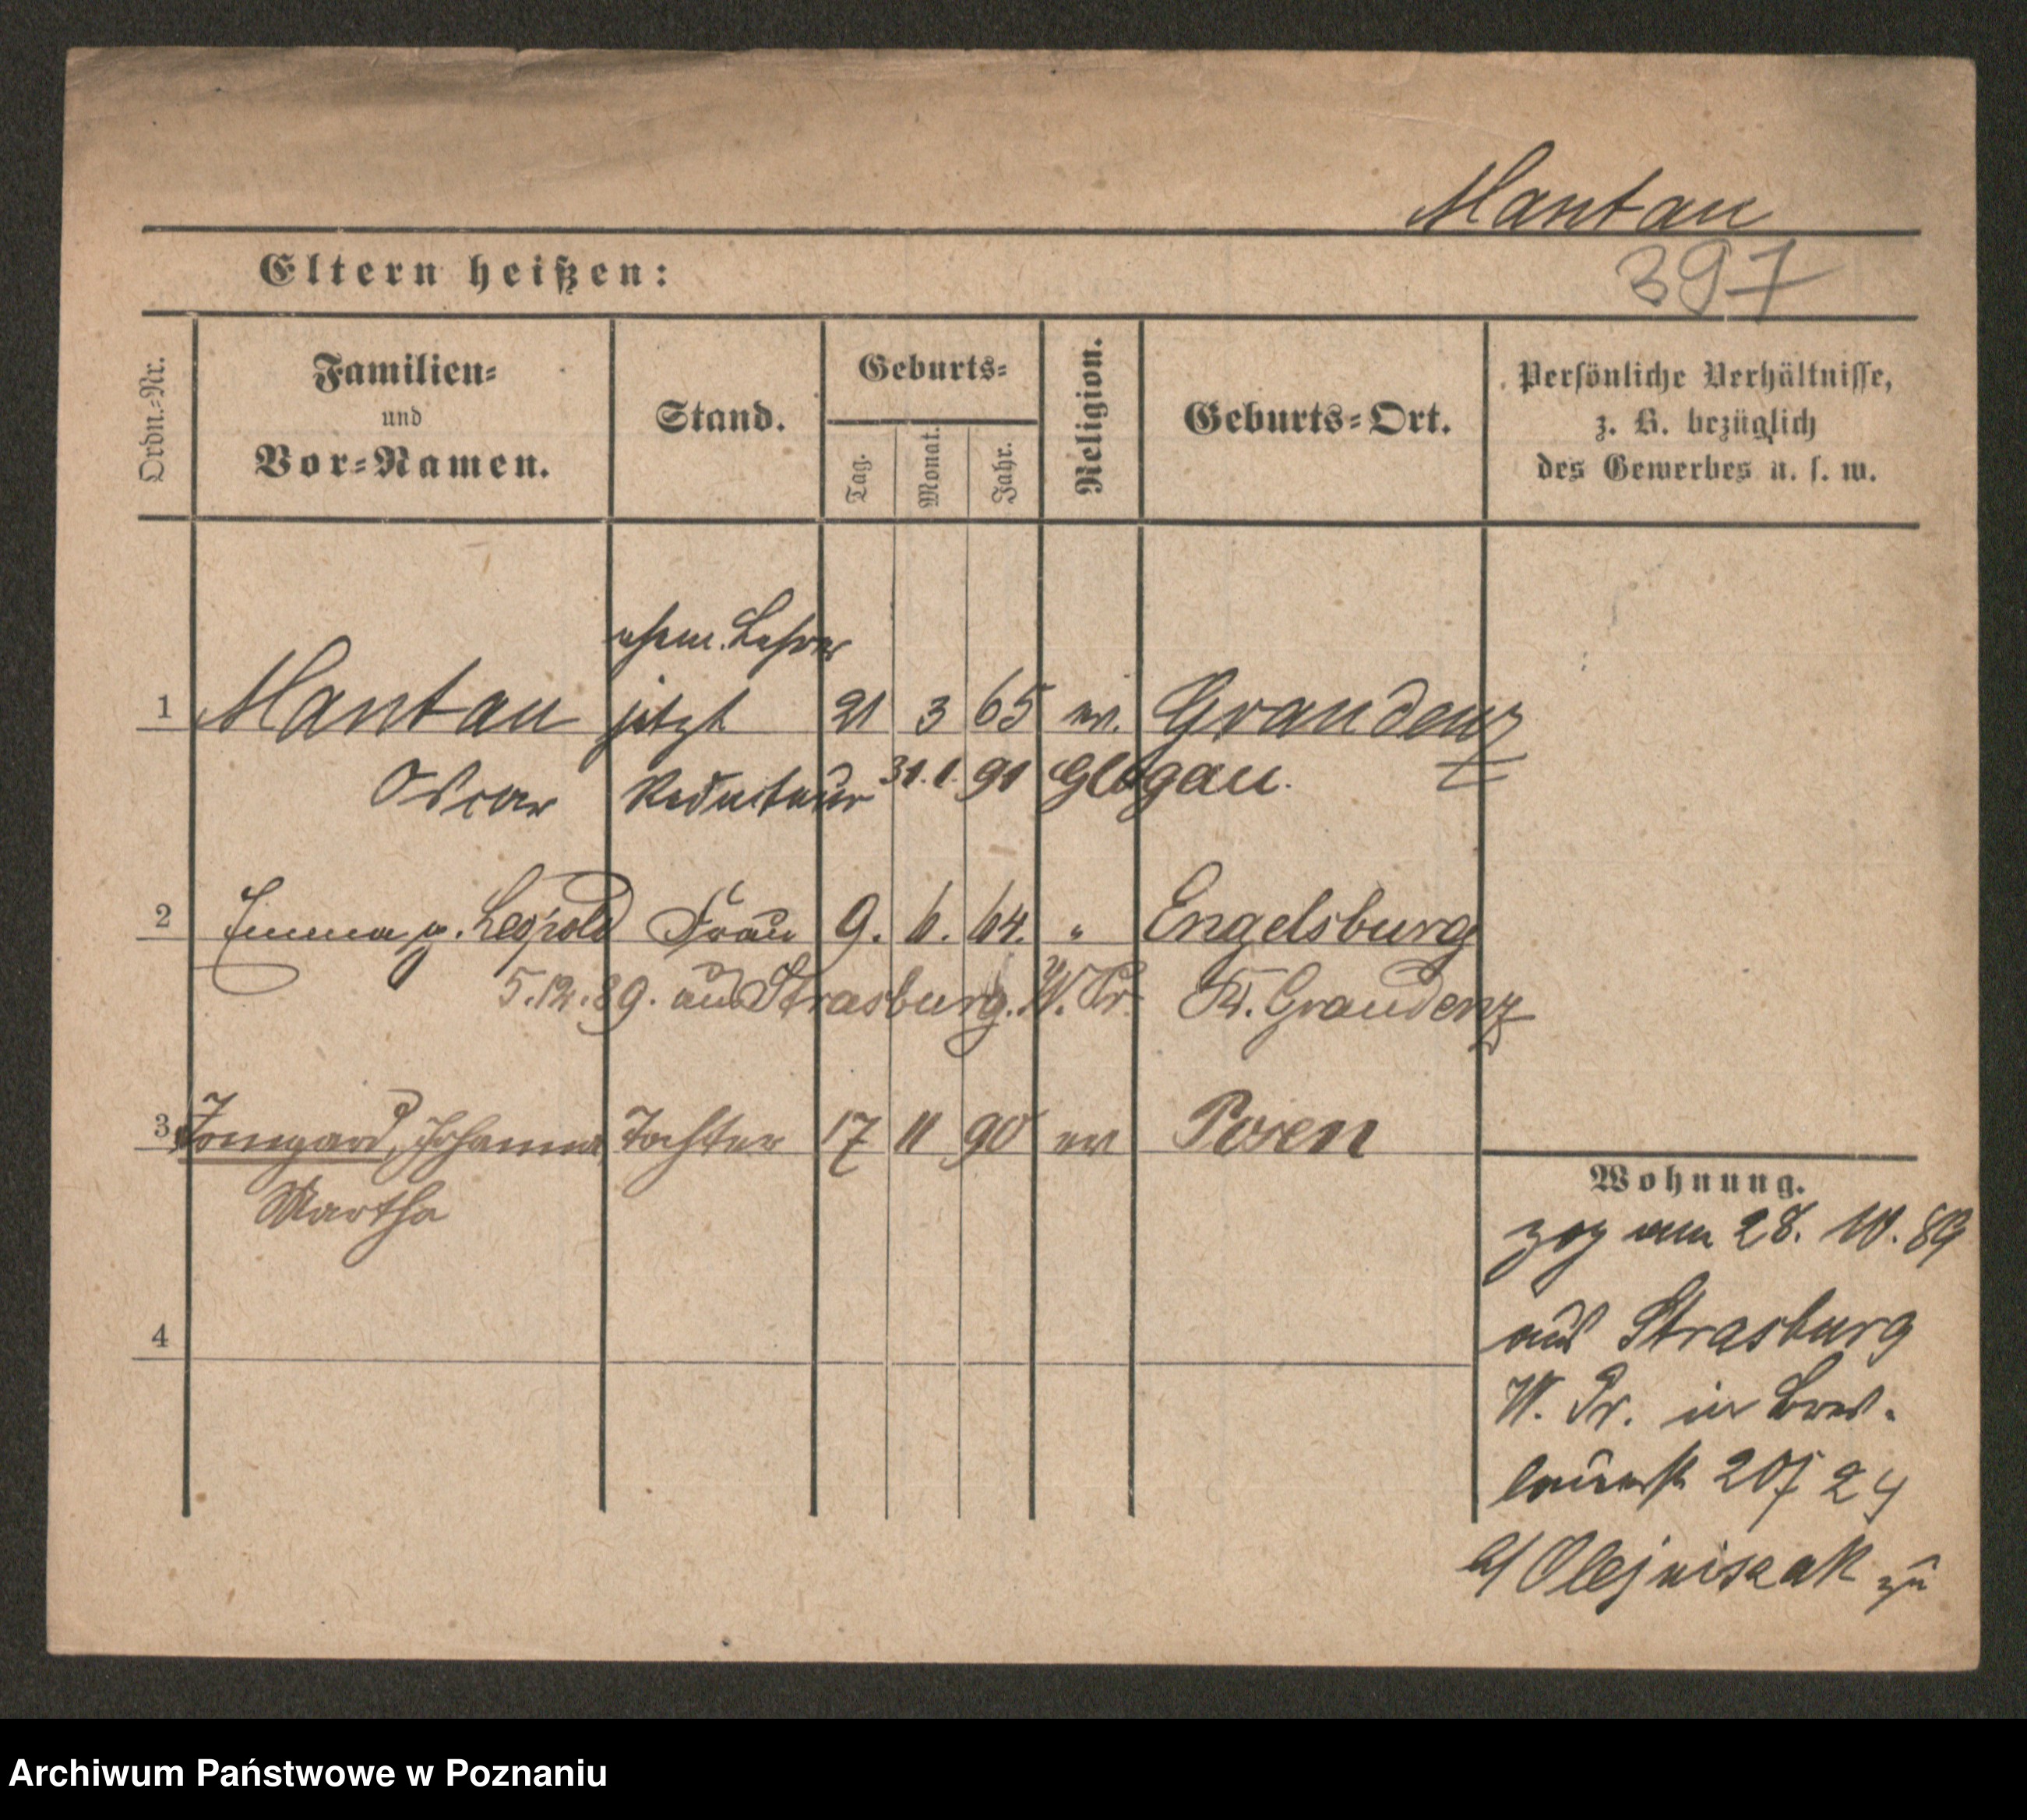 Mantau
397
Eltern heißen:
Ordn.-Nr.
Familien-
und
Vor-Namen.
Stand.
Geburts-
Tag.
Monat.
Jahr.
Religion.
Geburts-Ort.
Persönliche Verhältnisse,
z. B. bezüglich
des Gewerbes u. s. w.
ehem. Lehrer
1 Mantau jetzt 21 3 65 ev. Graudenz
Oscar Redakteur 31. 1. 91 Glogau.
2 Emma g. Leopold Frau 9. 6. 64. " Engelsburg
5.12.89. aus Strasburg. W. Pr. Kr. Graudenz
3 Irmgard, Johanna Tochter 17 11 90 ev Posen
Martha
4
Wohnung.
zog am 28. 10. 89
aus Strasburg
W. Pr. in Bres-
lauerstr 20/ 24
b/ Olejniszak zu
Archiwum Państwowe w Poznaniu